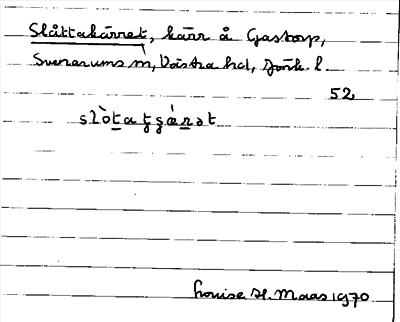 Slåttakärret, kärr å Gastorp,
Svenarums sn, Västra hd, Jönk. l.
52
slòtaʈʂǽrət
Louise H. Maas 1970